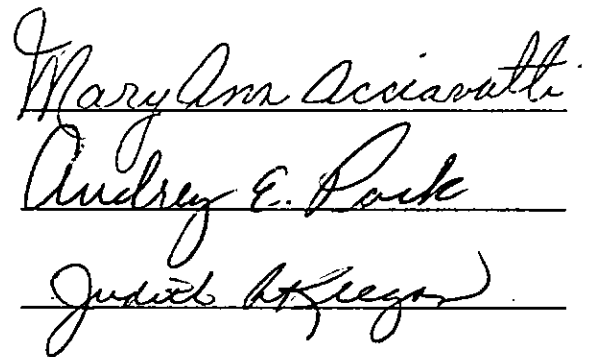 Mary Ann Acciavatti
Audrey E. Pock
Judith A Keegan